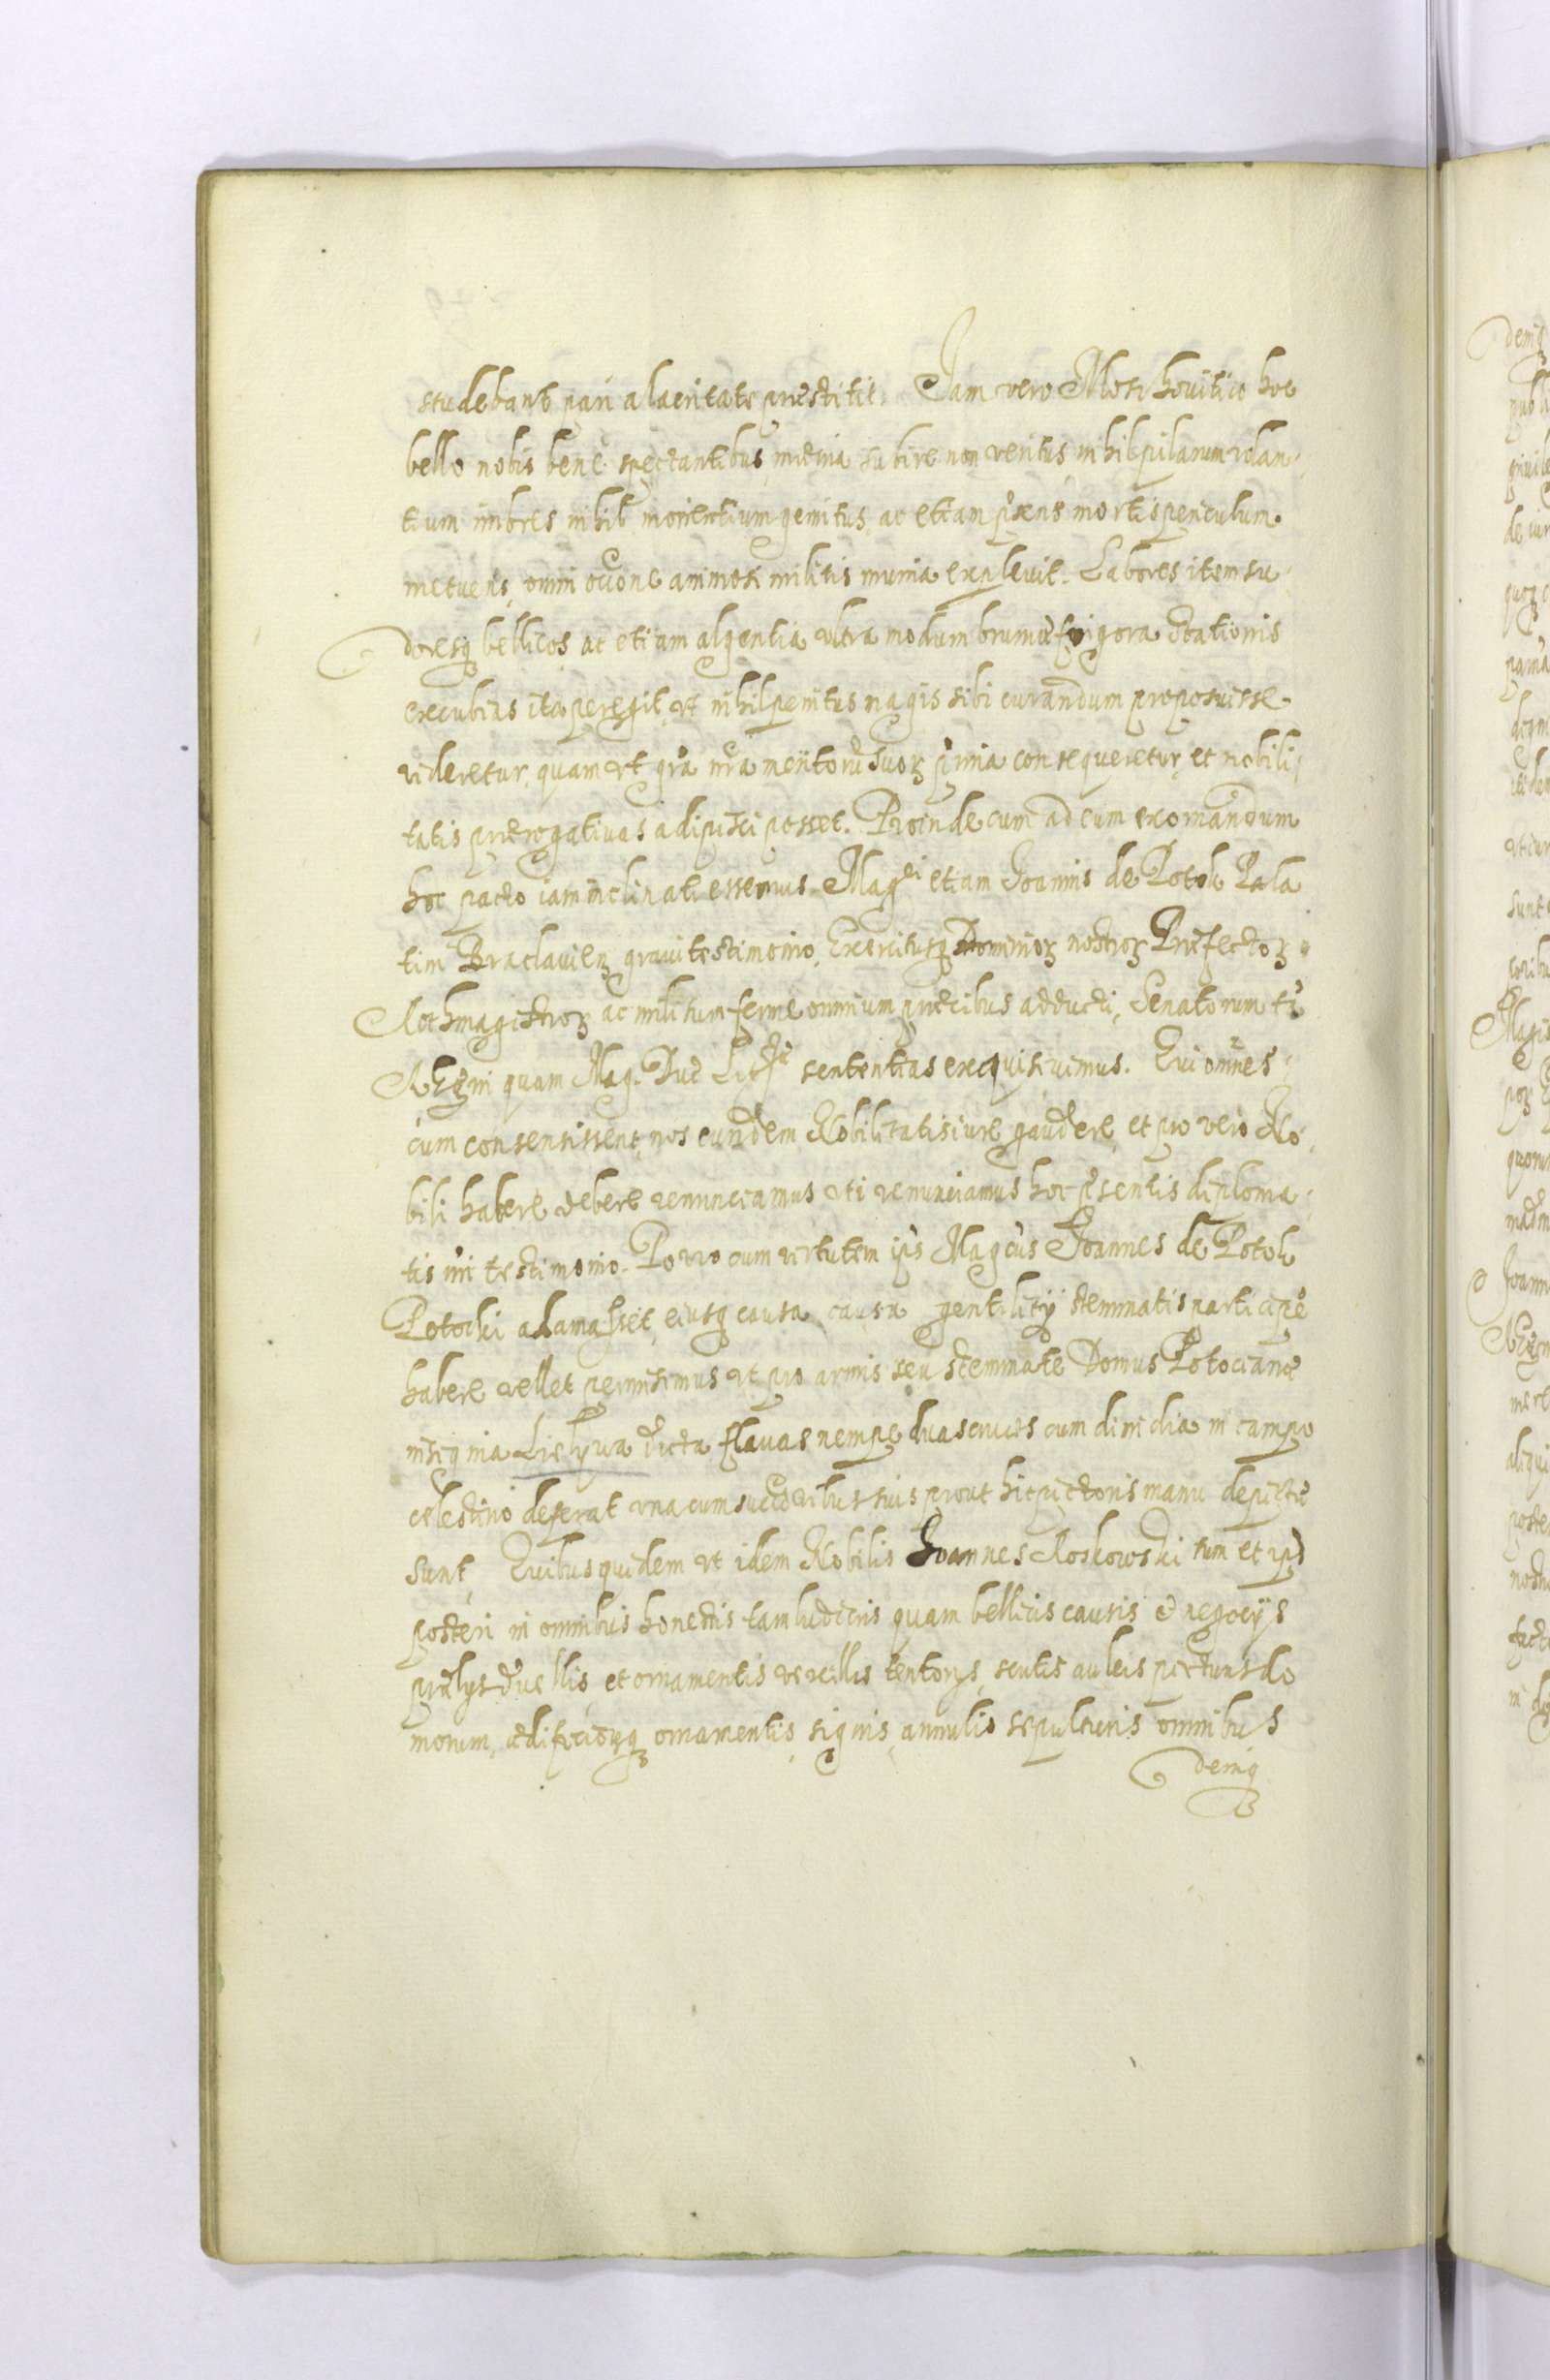 studebant pari alacritate præstitit. Jam vero Moschovitico hoc
bello nobis bene spectantibus, mœnia subire non veritus, nihil pilarum volan-
tium imbres nihil morientium gemitus, ac etiam p̃sens mortis periculum
metuens, omni oc̃c̃one animosi militis munia explevit. Labores item su
doresq bellicos ac etiam algentia ultra modum brumæ frigora stationis
excubias ita peregit, ut nihil penitus magis sibi curandum proposuisse
videretur, quam ut gr̃a nr̃a meritorũ suorꝫ p̃mia consequeretur, et nobili
tatis prærogativas adipisci posset. Proinde cum ad eum exornandum
hoc pacto iam inclinati essemus. Magci etiam Joannis de Potok Pala
tini Braclavien gravi testimonio, Exercitusq Dominorꝫ nostrorꝫ Præfectorꝫ
Rothmagistrorꝫ ac militum ferme omnium precibus adducti, Senatorum tã
Regni quam Mag. Duc̃ Litt̃ sententias exquisivimus. Qui om̃nes
cum consensissent, nos eundem Nobilitatis iure gaudere, et pro vero No
bili habere debere renunciamus uti renunciamus hoc p̃sentis diploma
tis nr̃i testimonio. Porro cum virtutem ips̃ Magcus Joannes de Potok
Potocki adamasset, eiusq causa causa gentilitÿ stemmatis participẽ
habere vellet permisimus ut pro armis seu stemmate Domus Potocianæ
insignia Lis dicta flavas nempe duas cruces cum dimidia in campo
celestino deferat una cum succoribus suis prout hic pictoris manu depictæ
sunt, Quibus quidem ut idem Nobilis Joannes Roskowski tum et ips̃
posteri in omnibus honestis tam ludicris quam bellicis causis et negocÿs
prælÿs duellis, et ornamentis vexillis tentorÿs, scutis auleis picturis do
morum, ædificiorꝫq ornamentis, signis, annulis sepulturis omnibus
deniq